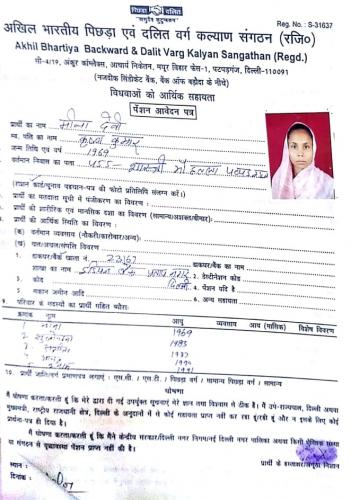 पिछड़ा दलित
"वसुधैव कुटुम्बकम्"
Reg. No. : S-31637
अखिल भारतीय पिछड़ा एवं दलित वर्ग कल्याण संगठन (रजि०)
Akhil Bhartiya Backward & Dalit Varg Kalyan Sangathan (Regd.)
सी-4/19, अंकुर काम्प्लेक्स, आचार्य निकेतन, मयूर विहार फेस-1, पटपड़गंज, दिल्ली-110091
(नजदीक सिंडीकेट बैंक, बैंक ऑफ बड़ौदा के नीचे)
विधवाओं को आर्थिक सहायता
पेंशन आवेदन पत्र
प्रार्थी का नाम मीना देवी
स्व. पति का नाम कृष्ण कुमार
जन्म तिथि एवं वर्ष 1969
वर्तमान निवास का पता 455- शास्त्री मौहल्ला
(राशन कार्ड/चुनाव पहचान-पत्र की फोटो प्रतिलिपि संलग्न करें।)
प्रार्थी का मतदाता सूची में पंजीकरण का विवरण :
प्रार्थी की शारीरिक एवं मानसिक दशा का विवरण (सामान्य/अशक्त/बीमार)
प्रार्थी की आर्थिक स्थिति का विवरण :
(क) वर्तमान व्यवसाय (नौकरी/कारोबार/अन्य)
(ख) चल/अचल/संपत्ति विवरण
1. डाकघर/बैंक खाता नं. 23167 डाकघर/बैंक का नाम
शाखा का नाम इंडियन बैंक प्रताप नगर 2. डेस्टीनेशन कोड
3. कोड दिल्ली 4. पेंशन यदि है
5. मकान जमीन आदि 6. अन्य सहायता
9. परिवार के सदस्यों का प्रार्थी सहित ब्यौरा:
क्रमांक नाम आयु व्यवसाय आय (मासिक) विशेष विवरण
1 मीना 1969
2 1983
3 1987
4
5 1991
10. प्रार्थी जाति/वर्ग प्रमाणपत्र लगाएं : एस.सी. / एस.टी. / पिछड़ा वर्ग / सामान्य पिछड़ा वर्ग / सामान्य
घोषणा
मैं घोषणा करता/करती हूं कि मेरे द्वारा दी गई उपर्युक्त सूचनाएं मेरे ज्ञान तथा विश्वास से ठीक है। मैं उप-राज्यपाल, दिल्ली अथवा
मुख्यमंत्री, राष्ट्रीय राजधानी क्षेत्र, दिल्ली के अनुदानों में से कोई सहायता प्राप्त नहीं कर रहा हूं/रही हूं और न इसके लिए कोई
प्रार्थना-पत्र ही दिया है।
मैं घोषणा करता/करती हूं कि मैंने केन्द्रीय सरकार/दिल्ली नगर निगम/नई दिल्ली नगर पालिका अथवा किसी संस्था
या संगठन से वृद्धावस्था पेंशन प्राप्त नहीं की है।
स्थान :
दिनांक :
प्रार्थी के हस्ताक्षर/अंगूठा निशान